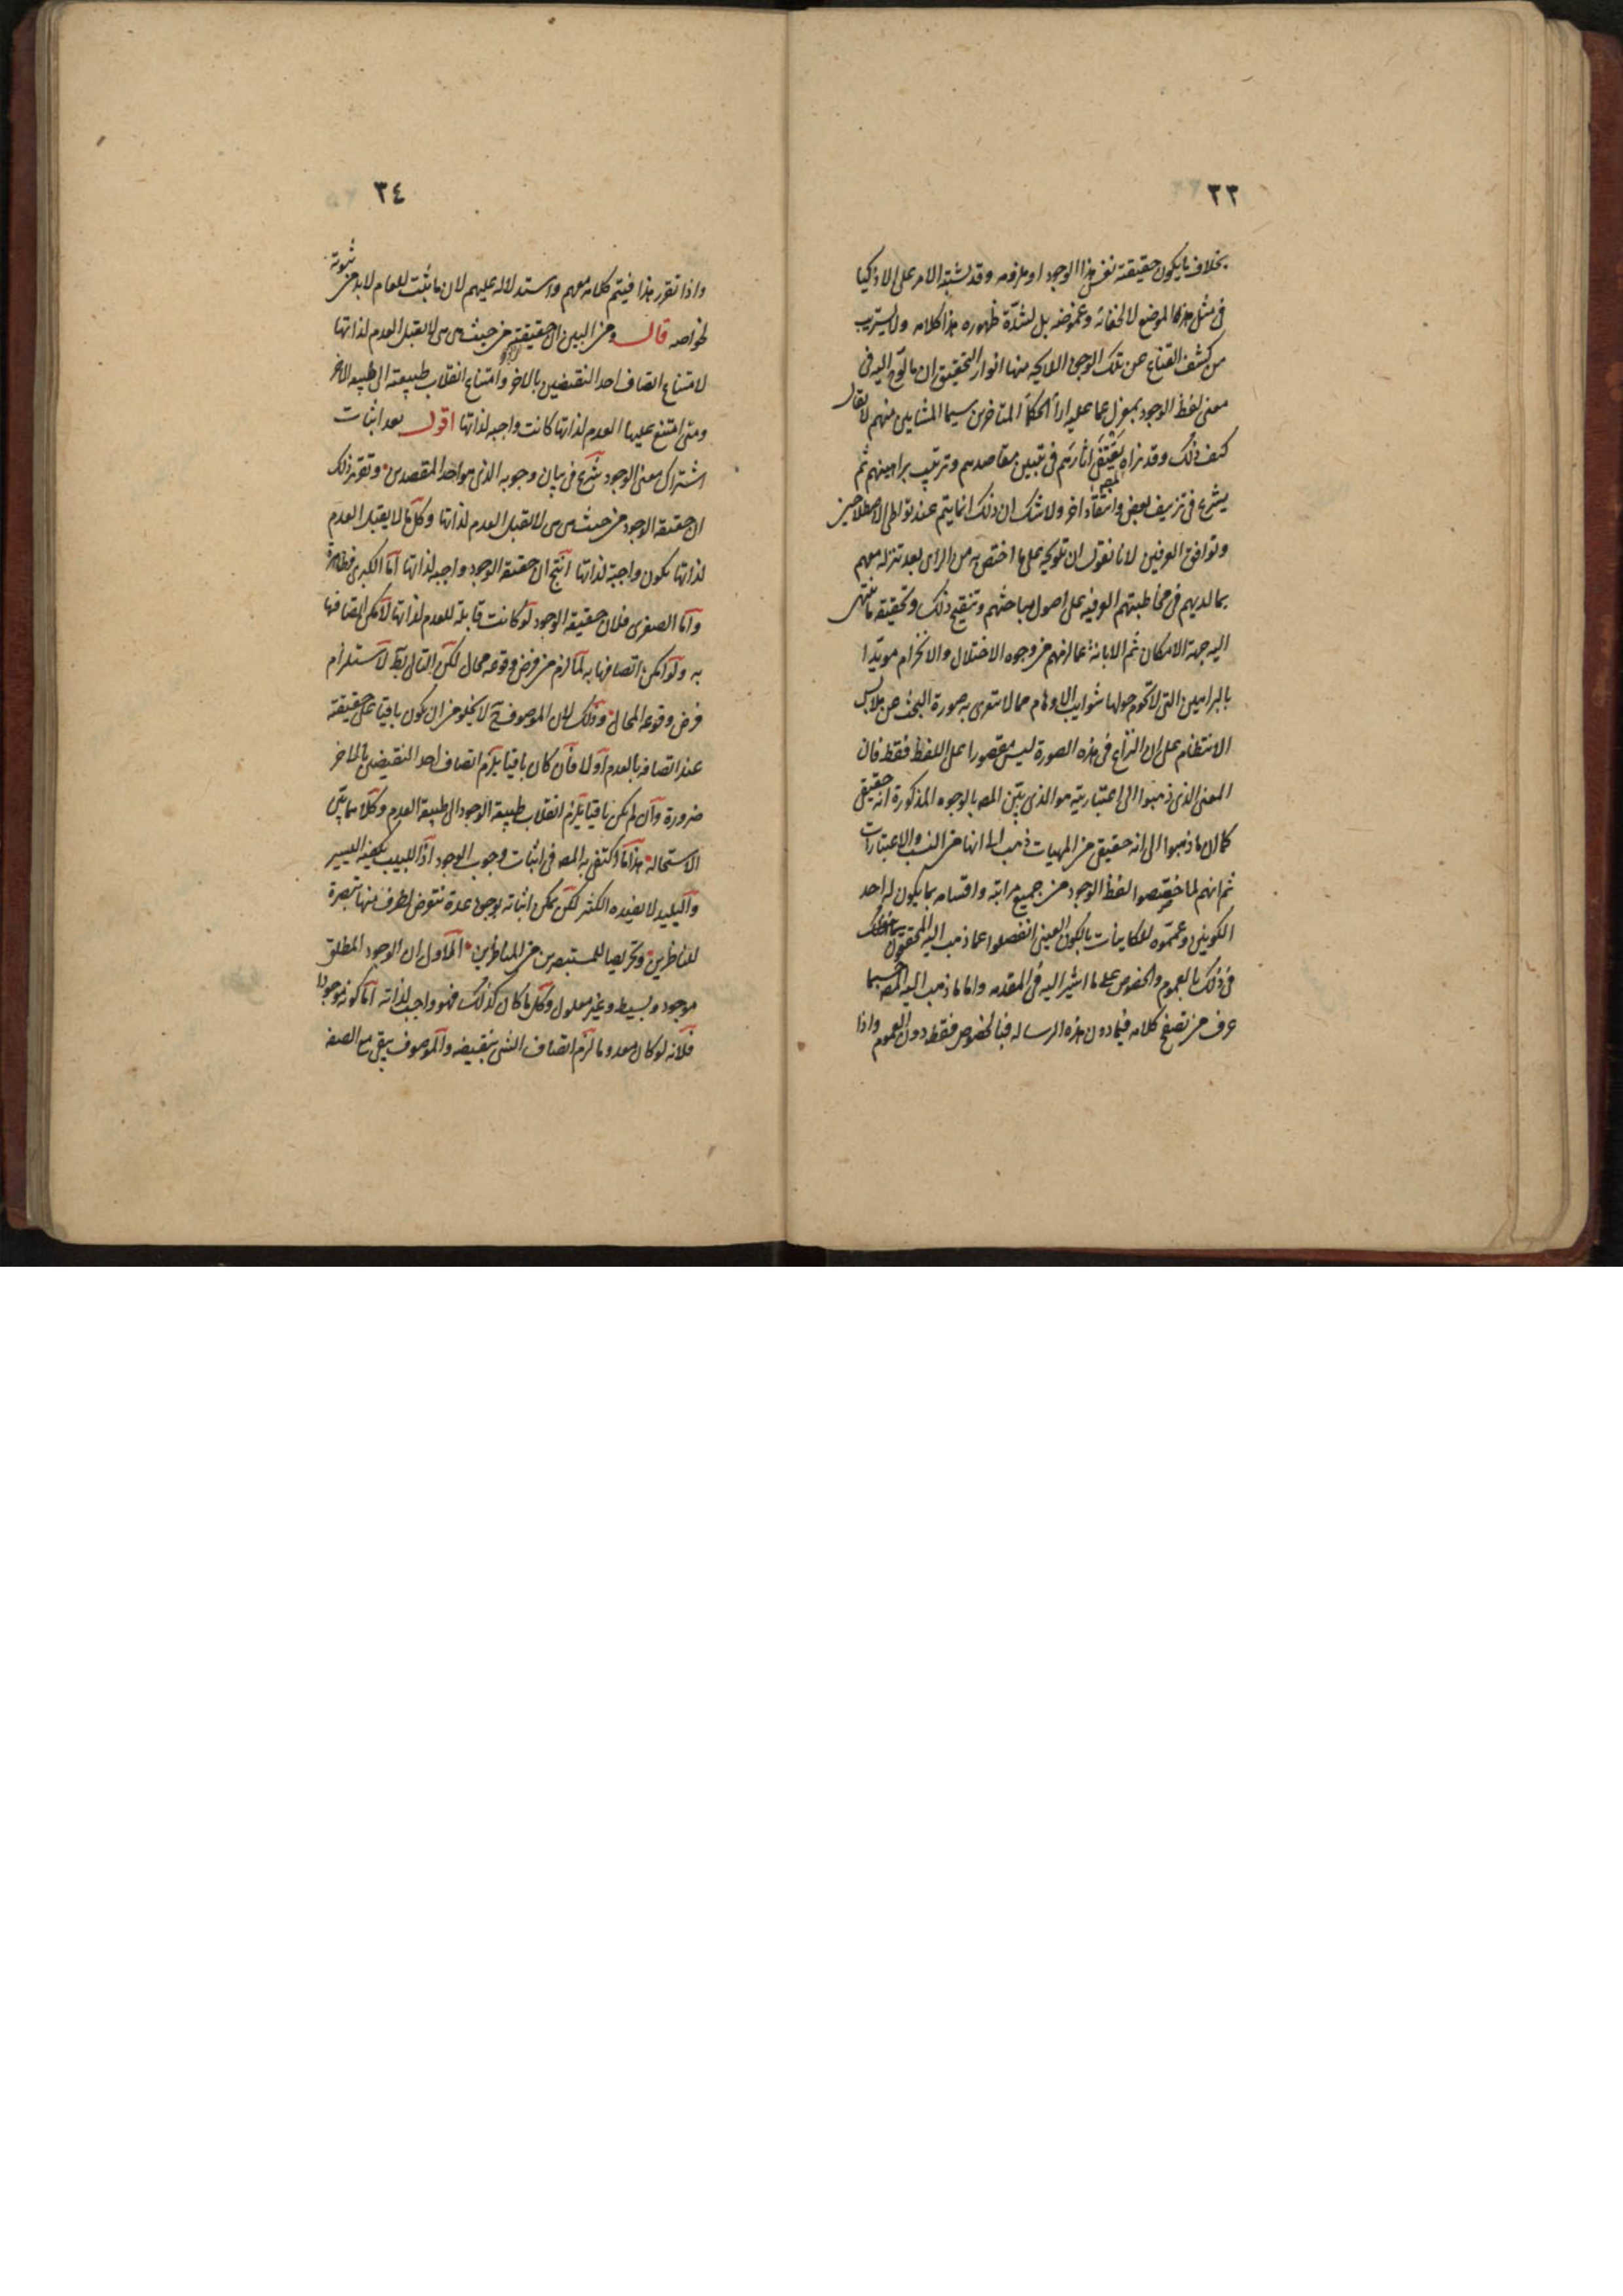 ٣٣
بخلاف ما يكون حقيقته نفس هذا الوجود او ملزومه وقد يشتبه الامر على الاذكيا
فى مثل هذا الموضع لا لخفائه وغموضه بل لشدّة ظهوره هذا كلامه ولا يستريب
من كشف القناع عن تلك الوجوه اللايحه منها انوار التحقيق ان ما لوّح اليه فى
معنى لفظ الوجود بمعزل عما عليه اراٴ الحكماٴ المتاخرين سيما المشايين منهم لا يقال
كيف ذلك وقد نراه يقتفى اثارهم فى تبيين مقاصدهم وترتيب براهينهم ثم
يشرع فى تزييف بعض وانتقاد اخر ولا شك ان ذلك انما يتم عند تواطى الاصطلاحين
وتوافق العرفين لانا نقول ان تلويحه على ما اختص به من الراى بعد تنزله معهم
بما لديهم فى مخاطبتهم العرفيه على اصول مباحثهم وتنقيح ذلك وتحقيقه ما ينتهى
اليه جهة الامكان ثم الابانة عما لزمهم من وجوه الاختلال والانخرام مويّدا
بالبراهين التى لا تحوم حولها شوايب الاوهام مما لا تتعرى به صورة البحث عن ملابس
الانتظام على ان النزاع فى هذه الصورة ليس مقصورا على اللفظ فقط فان
المعنى الذى ذهبوا الى اعتباريته هو الذى بيّن المص بالوجوه المذكورة انه حقيقى
كما ان ما ذهبوا الى انه حقيقى من المهيات ذهب الى انها من النسب والاعتبارات
ثم انهم لما خصّصوا لفظ الوجود من جميع مراتبه واقسامه بما يكون له احد
الكونين وعمّموه للكاينات بالكون العينى انفصلوا عما ذهب اليه المحققون
فى ذلك بالعموم والخصوص على ما اشير اليه فى المقدمه واما ما ذهب اليه المص حسبما
عرف من تصفح كلامه فيما دون هذه الرساله فبالخصوص فقط دون العموم واذا
٣٤
واذا تقرر هذا فيتم كلامه معهم واستدلاله عليهم لان ما ثبت للعام لابد من ثبوته
لخواصه قال ومن البين ان حقيقته من حيث هى هى لا تقبل العدم لذاتها
لامتناع اتصاف احد النقيضين بالاخر وامتناع انقلاب طبيعته الى طبيعه الاخر
ومتى امتنع عليها العدم لذاتها كانت واجبه لذاتها اقول بعد اثبات
اشتراك معنى الوجود شرع فى بيان وجوبه الذى هو احد المقصدين وتقريره ذلك
ان حقيقه الوجود من حيث هى هى لا تقبل العدم لذاتها وكل ما لا يقبل العدم
لذاتها يكون واجبة لذاتها انتج ان حقيقه الوجود واجبه لذاتها اما الكبرى فظاهرة
واما الصغرى فلان حقيقه الوجود لو كانت قابلة للعدم لذاتها لامكن اتصافها
به ولو امكن اتصافها به لما لزم من فرض وقوعه محال لكن التالى بط لاستلزام
فرض وقوعه المحال وذلك لان الموصوف ح لا يخلو من ان يكون باقيا على حقيقته
عند اتصافه بالعدم او لا فان كان باقيا يلزم اتصاف احد النقيضين بالاخر
ضرورة وان لم يكن باقيا يلزم انقلاب طبيعه الوجود الى طبيعه العدم وكلاهما بيّن
الاستحاله هذا ما اكتفى به المص فى اثبات وجوب الوجود اذ اللبيب يكفيه اليسير
والبليد لا يفيده الكثير لكن يمكن اثباته بوجوه عدة نتعرض لطرف منها تبصرة
للناظرين وتحريصا للمستبصرين من المناظرين الاول ان الوجود المطلق
موجود وبسيط وغير معلول وكل ما كان كذلك فهو واجب لذاته اما كونه موجودا
فلانه لو كان معدوما لزم اتصاف الشى بنقيضه والموصوف يبقى مع الصفه